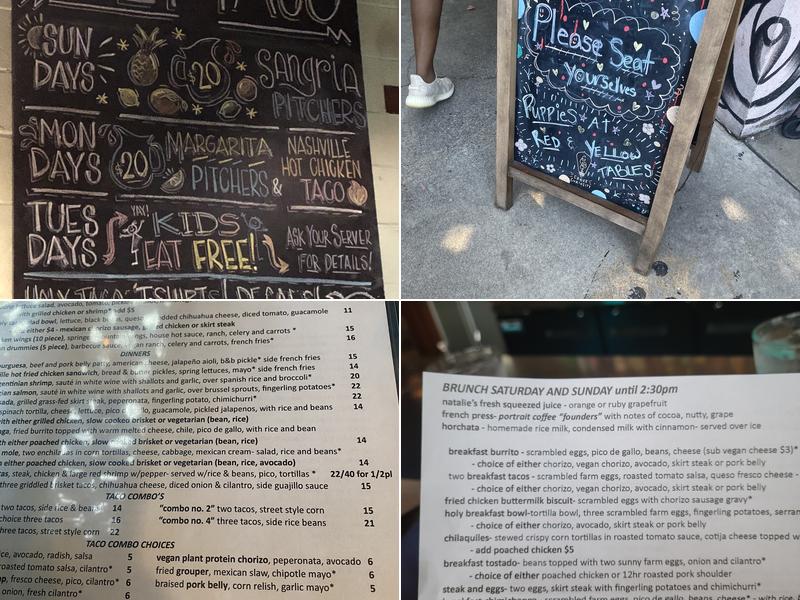 TACO
SUN DAYS
$20
SANGRIA PITCHERS
MON DAYS
$20
MARGARITA PITCHERS &
NASHVILLE HOT CHICKEN TACO
TUES DAYS
YAY!
KIDS EAT FREE!
ASK YOUR SERVER
FOR DETAILS!
Please Seat
Yourselves
Puppies At
Red & Yellow
Tables
salad, avocado, tomato,
with grilled chicken or shrimp* add $5
bowl, lettuce, black beans, queso added chihuahua cheese, diced tomato, guacamole 11
either $4 - mexican chorizo sausage, chicken or skirt steak
wings (10 piece), house hot sauce, ranch, celery and carrots * 15
drummies (5 piece), barbecue sauce, carrots, french fries* 16
DINNERS
beef and pork belly patty, american cheese, jalapeño aioli, b&b pickle* side french fries 15
hot fried chicken sandwich, bread & butter pickles, spring lettuces, mayo* side french fries 14
shrimp, sauté in white wine with shallots and garlic, over spanish rice and broccoli* 20
salmon, sauté in white wine with shallots and garlic, over brussel sprouts, fingerling potatoes* 22
grilled grass-fed skirt steak, peperonata, fingerling potato, chimichurri* 22
spinach tortilla, cheese, lettuce, pico guacamole, pickled jalapenos, with rice and beans 14
with either grilled chicken, slow cooked brisket or vegetarian (bean, rice)
fried burrito topped with warm melted cheese, chile, pico de gallo, with rice and bean
either poached chicken, slow cooked brisket or vegetarian (bean, rice) 14
mole, two enchiladas in corn tortillas, cheese, cabbage, mexican cream- salad, rice and beans*
either poached chicken, slow cooked brisket or vegetarian (bean, rice, avocado) 14
steak, chicken & large red shrimp w/pepper- served w/rice & beans, pico, tortillas * 22/40 for 1/2pl
three griddled brisket tacos, chihuahua cheese, diced onion & cilantro, side guajillo sauce 15
TACO COMBO'S
two tacos, side rice & beans 14 "combo no. 2" two tacos, street style corn 15
choice three tacos 16 "combo no. 4" three tacos, side rice beans 21
three tacos, street style corn 22
TACO COMBO CHOICES
avocado, radish, salsa 5 vegan plant protein chorizo, peperonata, avocado 6
roasted tomato salsa, cilantro* 5 fried grouper, mexican slaw, chipotle mayo* 6
fresco cheese, pico, cilantro* 6 braised pork belly, corn relish, garlic mayo* 5
onion, fresh cilantro* 6
BRUNCH SATURDAY AND SUNDAY until 2:30pm
natalie's fresh squeezed juice - orange or ruby grapefruit
french press- portrait coffee "founders" with notes of cocoa, nutty, grape
horchata - homemade rice milk, condensed milk with cinnamon- served over ice
breakfast burrito - scrambled eggs, pico de gallo, beans, cheese (sub vegan cheese $3)*
- choice of either chorizo, vegan chorizo, avocado, skirt steak or pork belly
two breakfast tacos - scrambled farm eggs, roasted tomato salsa, queso fresco cheese -
- choice of either chorizo, vegan chorizo, avocado, skirt steak or pork belly
fried chicken buttermilk biscuit- scrambled eggs with chorizo sausage gravy*
holy breakfast bowl-tortilla bowl, three scrambled farm eggs, fingerling potatoes,
- choice of either chorizo, avocado, skirt steak or pork belly
chilaquiles- stewed crispy corn tortillas in roasted tomato sauce, cotija cheese topped
- add poached chicken $5
breakfast tostado- beans topped with two sunny farm eggs, onion and cilantro*
- choice of either poached chicken or 12hr roasted pork shoulder
steak and eggs- two eggs, skirt steak with fingerling potatoes and chimichurri*